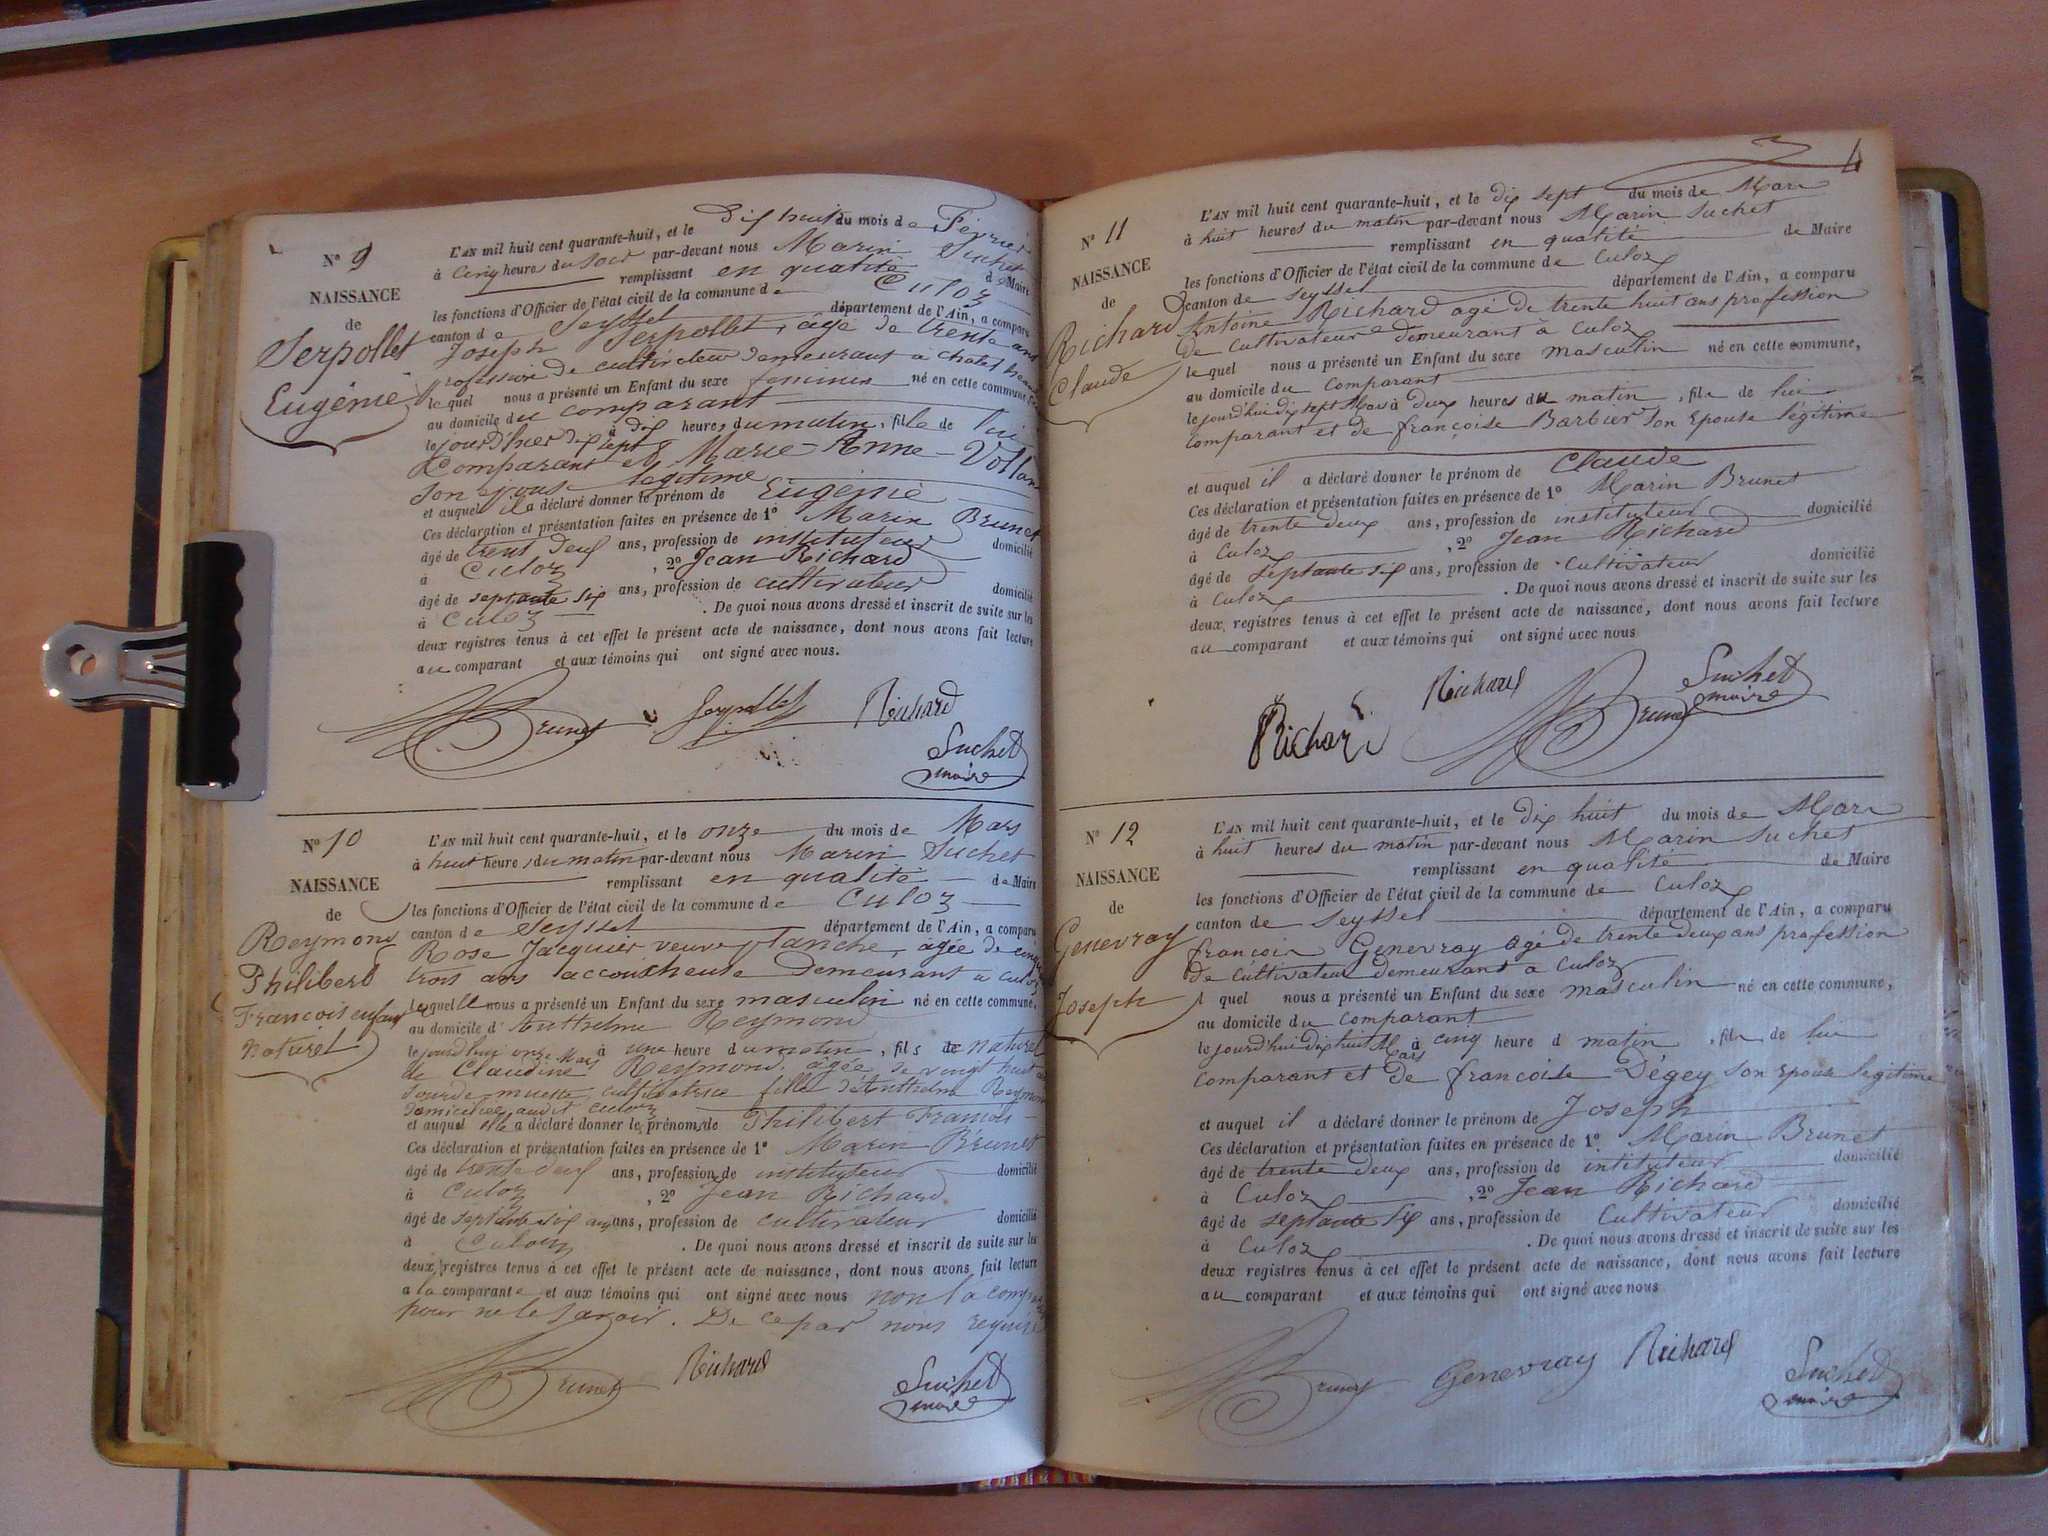 N° 9
NAISSANCE
de
Serpollet
Eugénie
L'AN mil huit cent quarante-huit, et le Dix huit du mois de Février
à Cinq heures du soir par-devant nous Marin Suchet
remplissant en qualité de Maire
les fonctions d'Officier de l'état civil de la commune de Culoz
canton de Seyssel département de l'Ain, a comparu
Joseph Serpollet, âgé de trente ans
profession de cultivateur demeurant à
le quel nous a présenté un Enfant du sexe feminin né en cette commune,
au domicile du comparant
le jourd'hier dix sept à dix heures du matin, fille de lui
Comparant et Marie-Anne
son épouse legitime
et auquel il a déclaré donner le prénom de Eugénie
Ces déclaration et présentation faites en présence de 1° Marin Brunet
âgé de trente deux ans, profession de instituteur domicilié
à Culoz , 2° Jean Richard
âgé de septante six ans, profession de cultivateur domicilié
à Culoz . De quoi nous avons dressé et inscrit de suite sur les
deux registres tenus à cet effet le présent acte de naissance, dont nous avons fait lecture
au comparant et aux témoins qui ont signé avec nous.
Brunet Serpollet Richard
Suchet
maire
N° 10
NAISSANCE
de
Reymond
Philibert
François enfant
naturel
L'AN mil huit cent quarante-huit, et le onze du mois de Mars
à huit heures du matin par-devant nous Marin Suchet
remplissant en qualité de Maire
les fonctions d'Officier de l'état civil de la commune de Culoz
canton de Seyssel département de l'Ain, a comparu
Rose Jacquier veuve Planche, agée de
trois ans accoucheuse Demeurant a culoz
laquelle nous a présenté un Enfant du sexe masculin né en cette commune,
au domicile d'Anthelme Reymond
le jourd'hui onze Mars à une heure du matin, fils naturel
de Claudine Reymond, âgée de vingt huit
sourde-muette, cultivatrice fille d'Anthelme Reymond
domiciliée audit culoz
et auquel elle a déclaré donner les prénoms de Philibert François
Ces déclaration et présentation faites en présence de 1° Marin Brunet
âgé de trente deux ans, profession de instituteur domicilié
à Culoz , 2° Jean Richard
âgé de septante six ans, profession de cultivateur domicilié
à Culoz . De quoi nous avons dressé et inscrit de suite sur les
deux registres tenus à cet effet le présent acte de naissance, dont nous avons fait lecture
a la comparante et aux témoins qui ont signé avec nous non la
pour ne le savoir. De ce par nous requise
Brunet Richard Suchet
maire
4
N° 11
NAISSANCE
de
Richard
Claude
L'AN mil huit cent quarante-huit, et le dix sept du mois de Mars
à huit heures du matin par-devant nous Marin Suchet
remplissant en qualité de Maire
les fonctions d'Officier de l'état civil de la commune de Culoz
canton de Seyssel département de l'Ain, a comparu
Antoine Richard agé de trente huit ans profession
de Cultivateur demeurant à Culoz
le quel nous a présenté un Enfant du sexe masculin né en cette commune,
au domicile du comparant
le jourd'hui dix sept Mars à deux heures du matin, fils de lui
comparant et de françoise Barbier son épouse légitime
et auquel il a déclaré donner le prénom de Claude
Ces déclaration et présentation faites en présence de 1° Marin Brunet
âgé de trente deux ans, profession de instituteur domicilié
à Culoz , 2° Jean Richard
âgé de septante six ans, profession de Cultivateur domicilié
à Culoz . De quoi nous avons dressé et inscrit de suite sur les
deux registres tenus à cet effet le présent acte de naissance, dont nous avons fait lecture
au comparant et aux témoins qui ont signé avec nous
Richard Richard Brunet Suchet
maire
N° 12
NAISSANCE
de
Genevray
Joseph
L'AN mil huit cent quarante-huit, et le dix huit du mois de Mars
à huit heures du matin par-devant nous Marin Suchet
remplissant en qualité de Maire
les fonctions d'Officier de l'état civil de la commune de Culoz
canton de Seyssel département de l'Ain, a comparu
françois Genevray agé de trente deux ans profession
de Cultivateur demeurant a Culoz
l quel nous a présenté un Enfant du sexe masculin né en cette commune,
au domicile du comparant
le jourd'hui dix huit Mars à cinq heure d matin, fils de lui
comparant et de françoise Dégey son épouse légitime
et auquel il a déclaré donner le prénom de Joseph
Ces déclaration et présentation faites en présence de 1° Marin Brunet
âgé de trente deux ans, profession de intituteur domicilié
à Culoz , 2° Jean Richard
âgé de septante six ans, profession de Cultivateur domicilié
à Culoz . De quoi nous avons dressé et inscrit de suite sur les
deux registres tenus à cet effet le présent acte de naissance, dont nous avons fait lecture
au comparant et aux témoins qui ont signé avec nous
Brunet Genevray Richard Suchet
maire